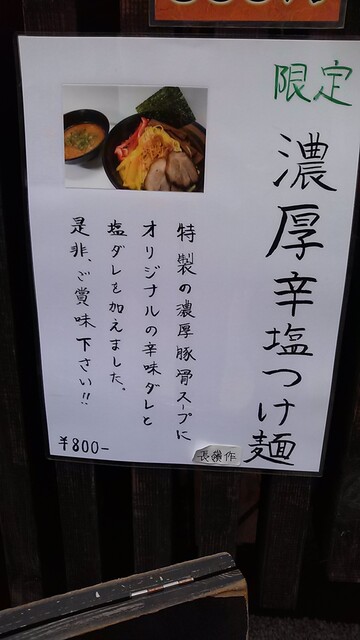 限定
濃厚辛塩つけ麺
特製の濃厚豚骨スープに
オリジナルの辛味ダレと
塩ダレを加えました。
是非、ご賞味下さい!!
¥800-